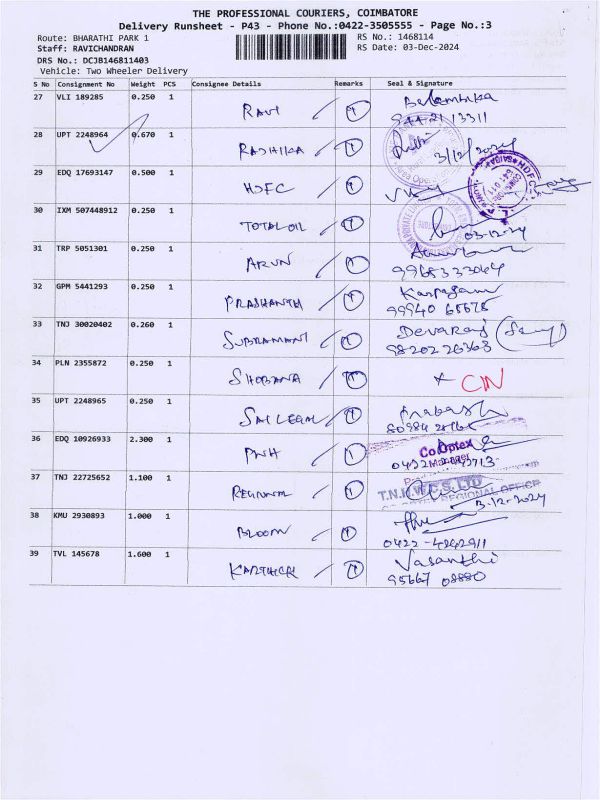 THE PROFESSIONAL COURIERS, COIMBATORE
Delivery Runsheet - P43 - Phone No.:0422-3505555 - Page No.:3
Route: BHARATHI PARK 1 RS No.: 1468114
Staff: RAVICHANDRAN RS Date: 03-Dec-2024
DRS No.: DCJB146811403
Vehicle: Two Wheeler Delivery
S No Consignment No Weight PCS Consignee Details Remarks Seal & Signature
27 VLI 189285 0.250 1 RAVI
28 UPT 2248964 0.670 1 RADHIKA 3/12/2024
29 EDQ 17693147 0.500 1 HDFC
30 IXM 507448912 0.250 1 TOTAL OIL 03-12-24
31 TRP 5051301 0.250 1 ARUN
32 GPM 5441293 0.250 1 PRASHANTH
33 TNJ 30020402 0.260 1 SUBRAMANI Devaraj
34 PLN 2355872 0.250 1 SHOBANA
35 UPT 2248965 0.250 1 SAI LEGAL
36 EDQ 10926933 2.300 1 Co-optex
Manager
37 TNJ 22725652 1.100 1 REGIONAL REGIONAL OFFICE
3-12-2024
38 KMU 2930893 1.000 1 BLOOM
0422-4242911
39 TVL 145678 1.600 1 KARTHICK Vasanthi
95667 08880